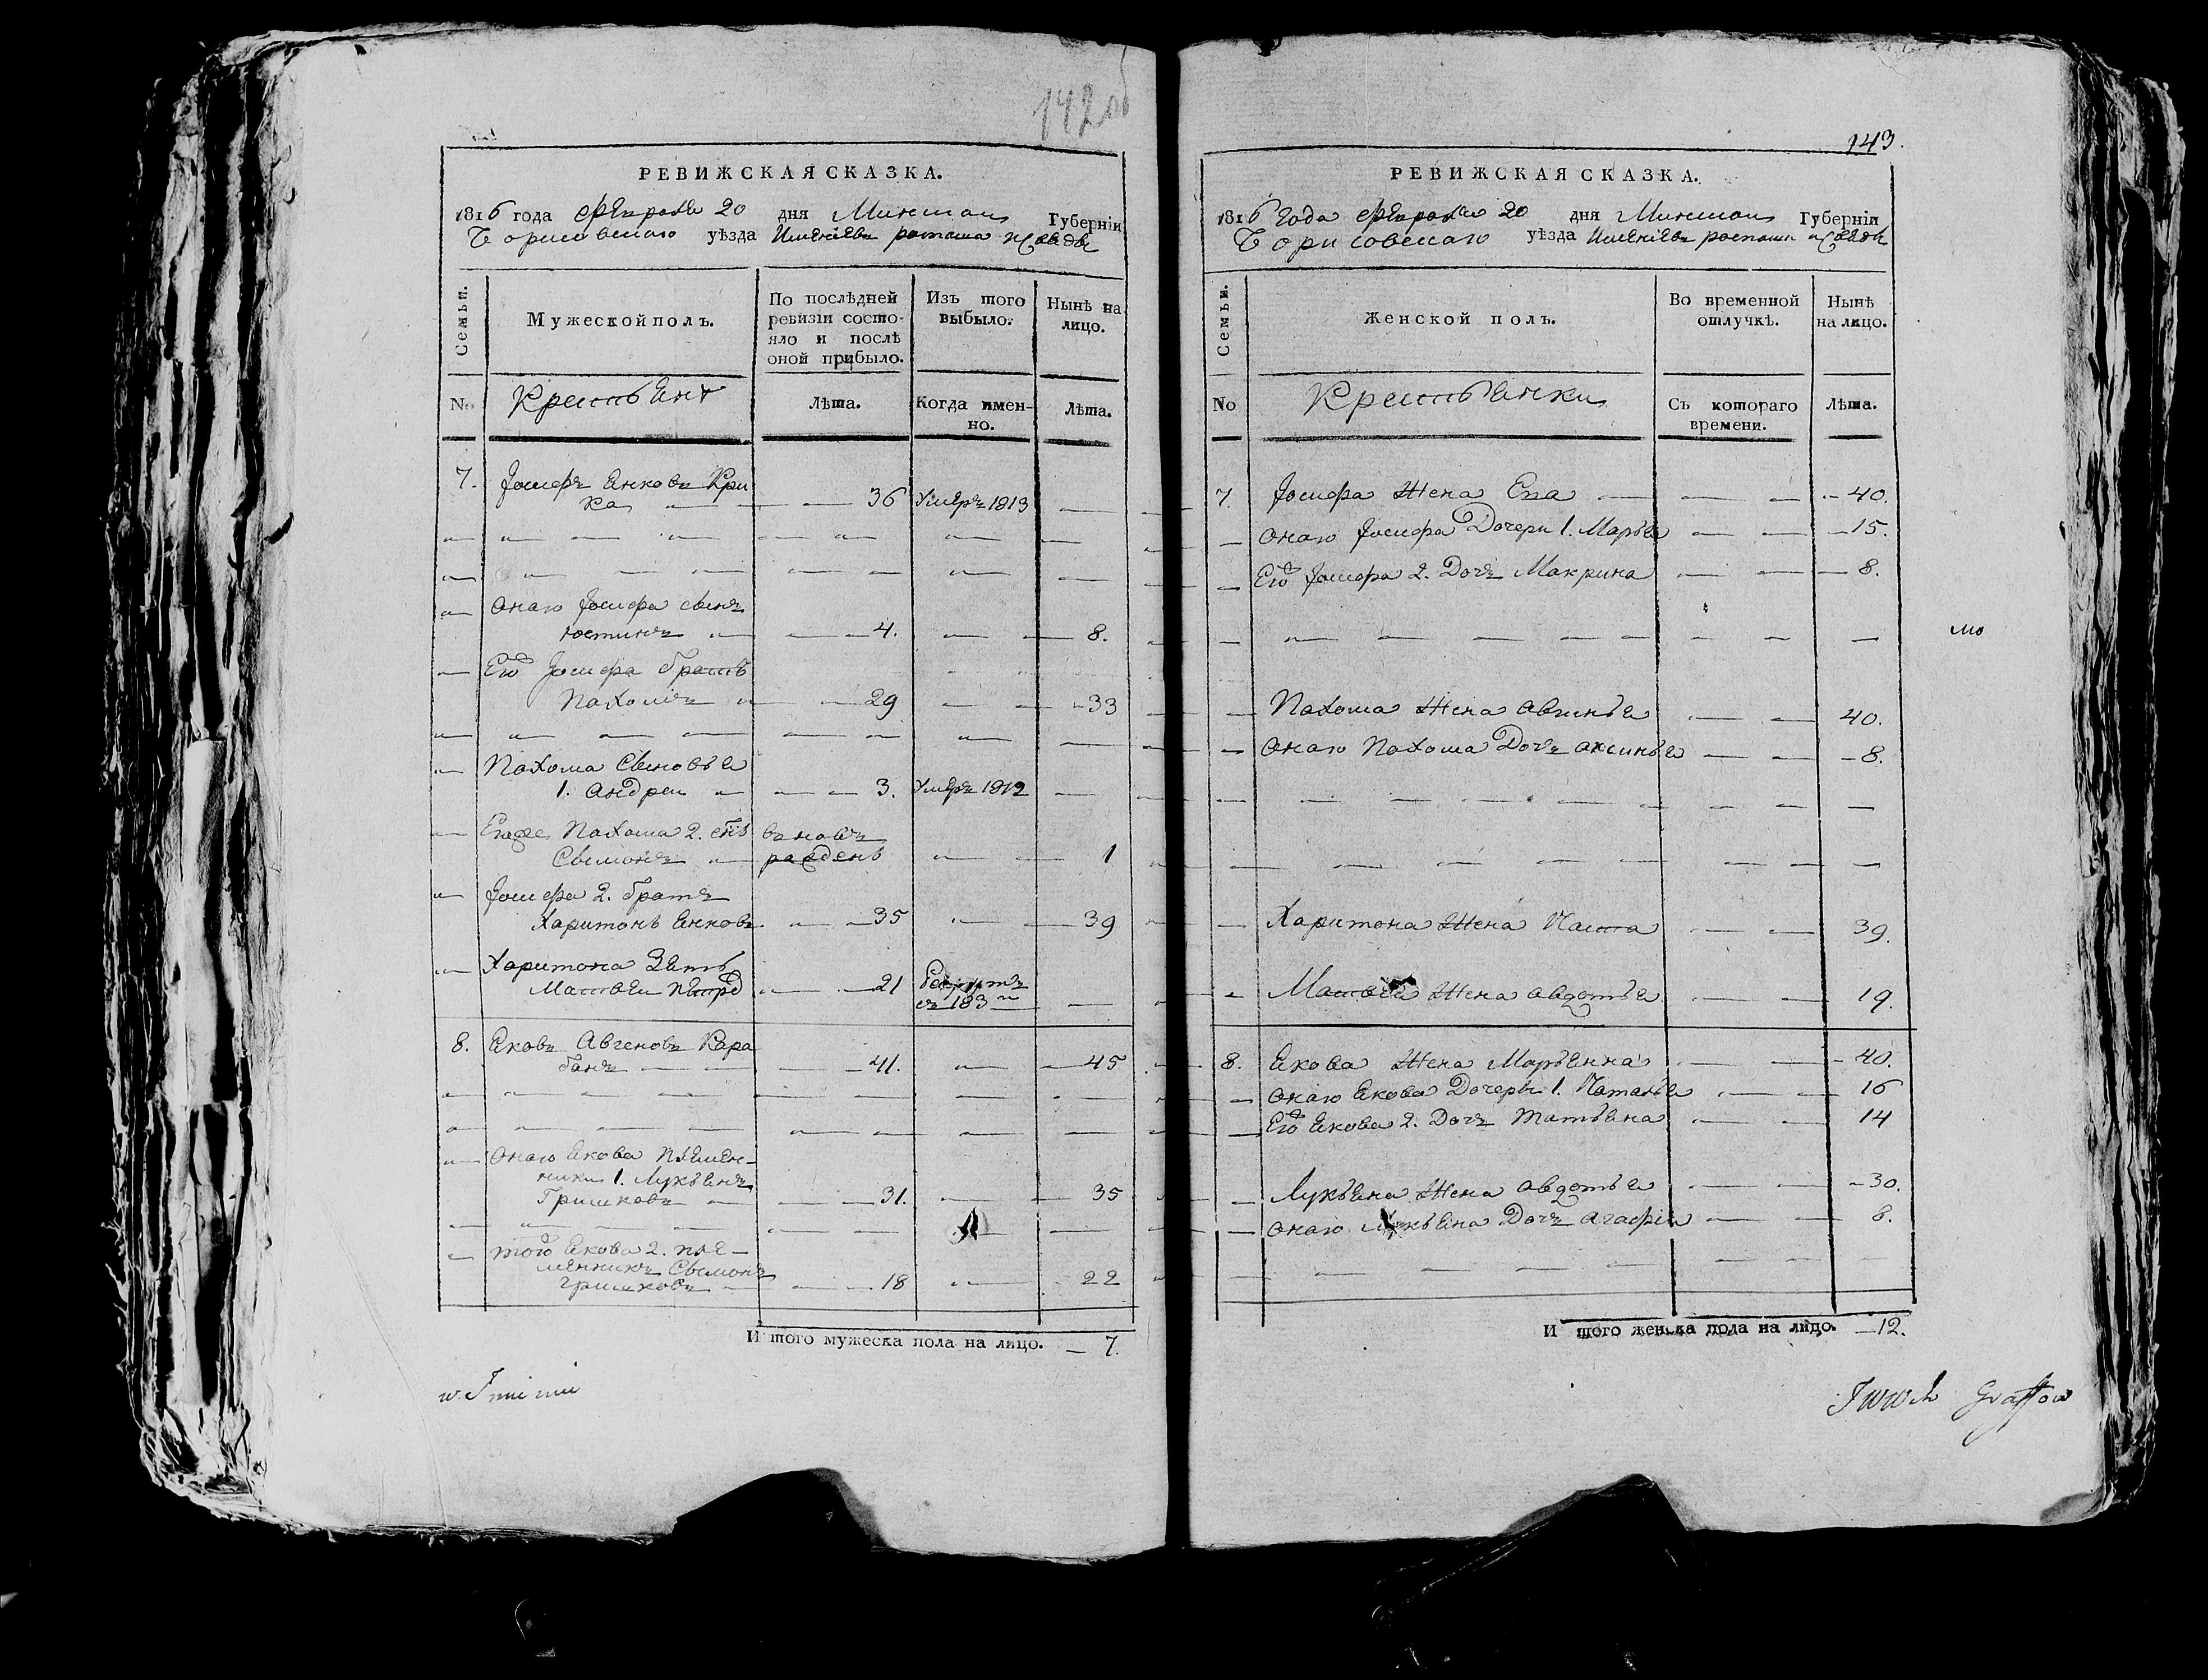 142 об
РЕВИЖСКАЯ СКАЗКА.
1816 года февраля 20 дня Минской Губерніи
Борисовскаго уѣзда Имѣніевъ
Семьи.
Мужеской полъ.
По послѣдней ревизіи состо-
яло и послѣ
оной прибыло.
Изъ того
выбыло.
Нынѣ на
лицо.
No
Крестьянъ
Лѣта.
Когда имен-
но.
Лѣта.
7. Іосифъ Янковъ Кри
ка 36 Умеръ 1813
Онаго Іосифа сынъ
Юстинъ 4. 8.
Его Іосифа братъ
Пахомій 29 33
Пахома Сыновья
1. Андрей 3. Умеръ 1812
Егоже Пахома 2. сынъ вановъ
Сымонъ рожденъ 1
Іосифа 2. братъ
Харитонъ Янковъ 35 39
Харитона Зять
Матвей Петро 21 Рекрутъ
8. Яковъ Авгеновъ Кара
банъ 41. 45
Онаго Якова племян-
ники 1. Лукьянъ
Гришковъ 31. 35
того Якова 2. пле-
менникъ Сымонъ
Гришковъ 18 22
И того мужеска пола на лицо. 7.
143.
РЕВИЖСКАЯ СКАЗКА.
1816 года февраля 20 дня Минской Губерніи
Борисовскаго уѣзда Имѣніевъ
Семьи.
Женской полъ.
Во временной
отлучкѣ.
Нынѣ
на лицо.
No
Крестьянки
Съ котораго
времени.
Лѣта.
7. Іосифа Жена Ева 40.
Онаго Іосифа Дочери 1. Марья 15.
Его Іосифа 2. Дочь Макрина 8.
Пахома Жена Авгинья 40.
Онаго Пахома Дочь Аксинья 8.
Харитона Жена Наста 39.
Матвея Жена Авдотья 19.
8. Якова Жена Марьянна 40.
Онаго Якова Дочери 1. Наталья 16
Его Якова 2. Дочь Татьяна 14
Лукьяна Жена Авдотья 30.
Онаго Лукьяна Дочь Агафія 8.
И того женска пола на лицо. 12.